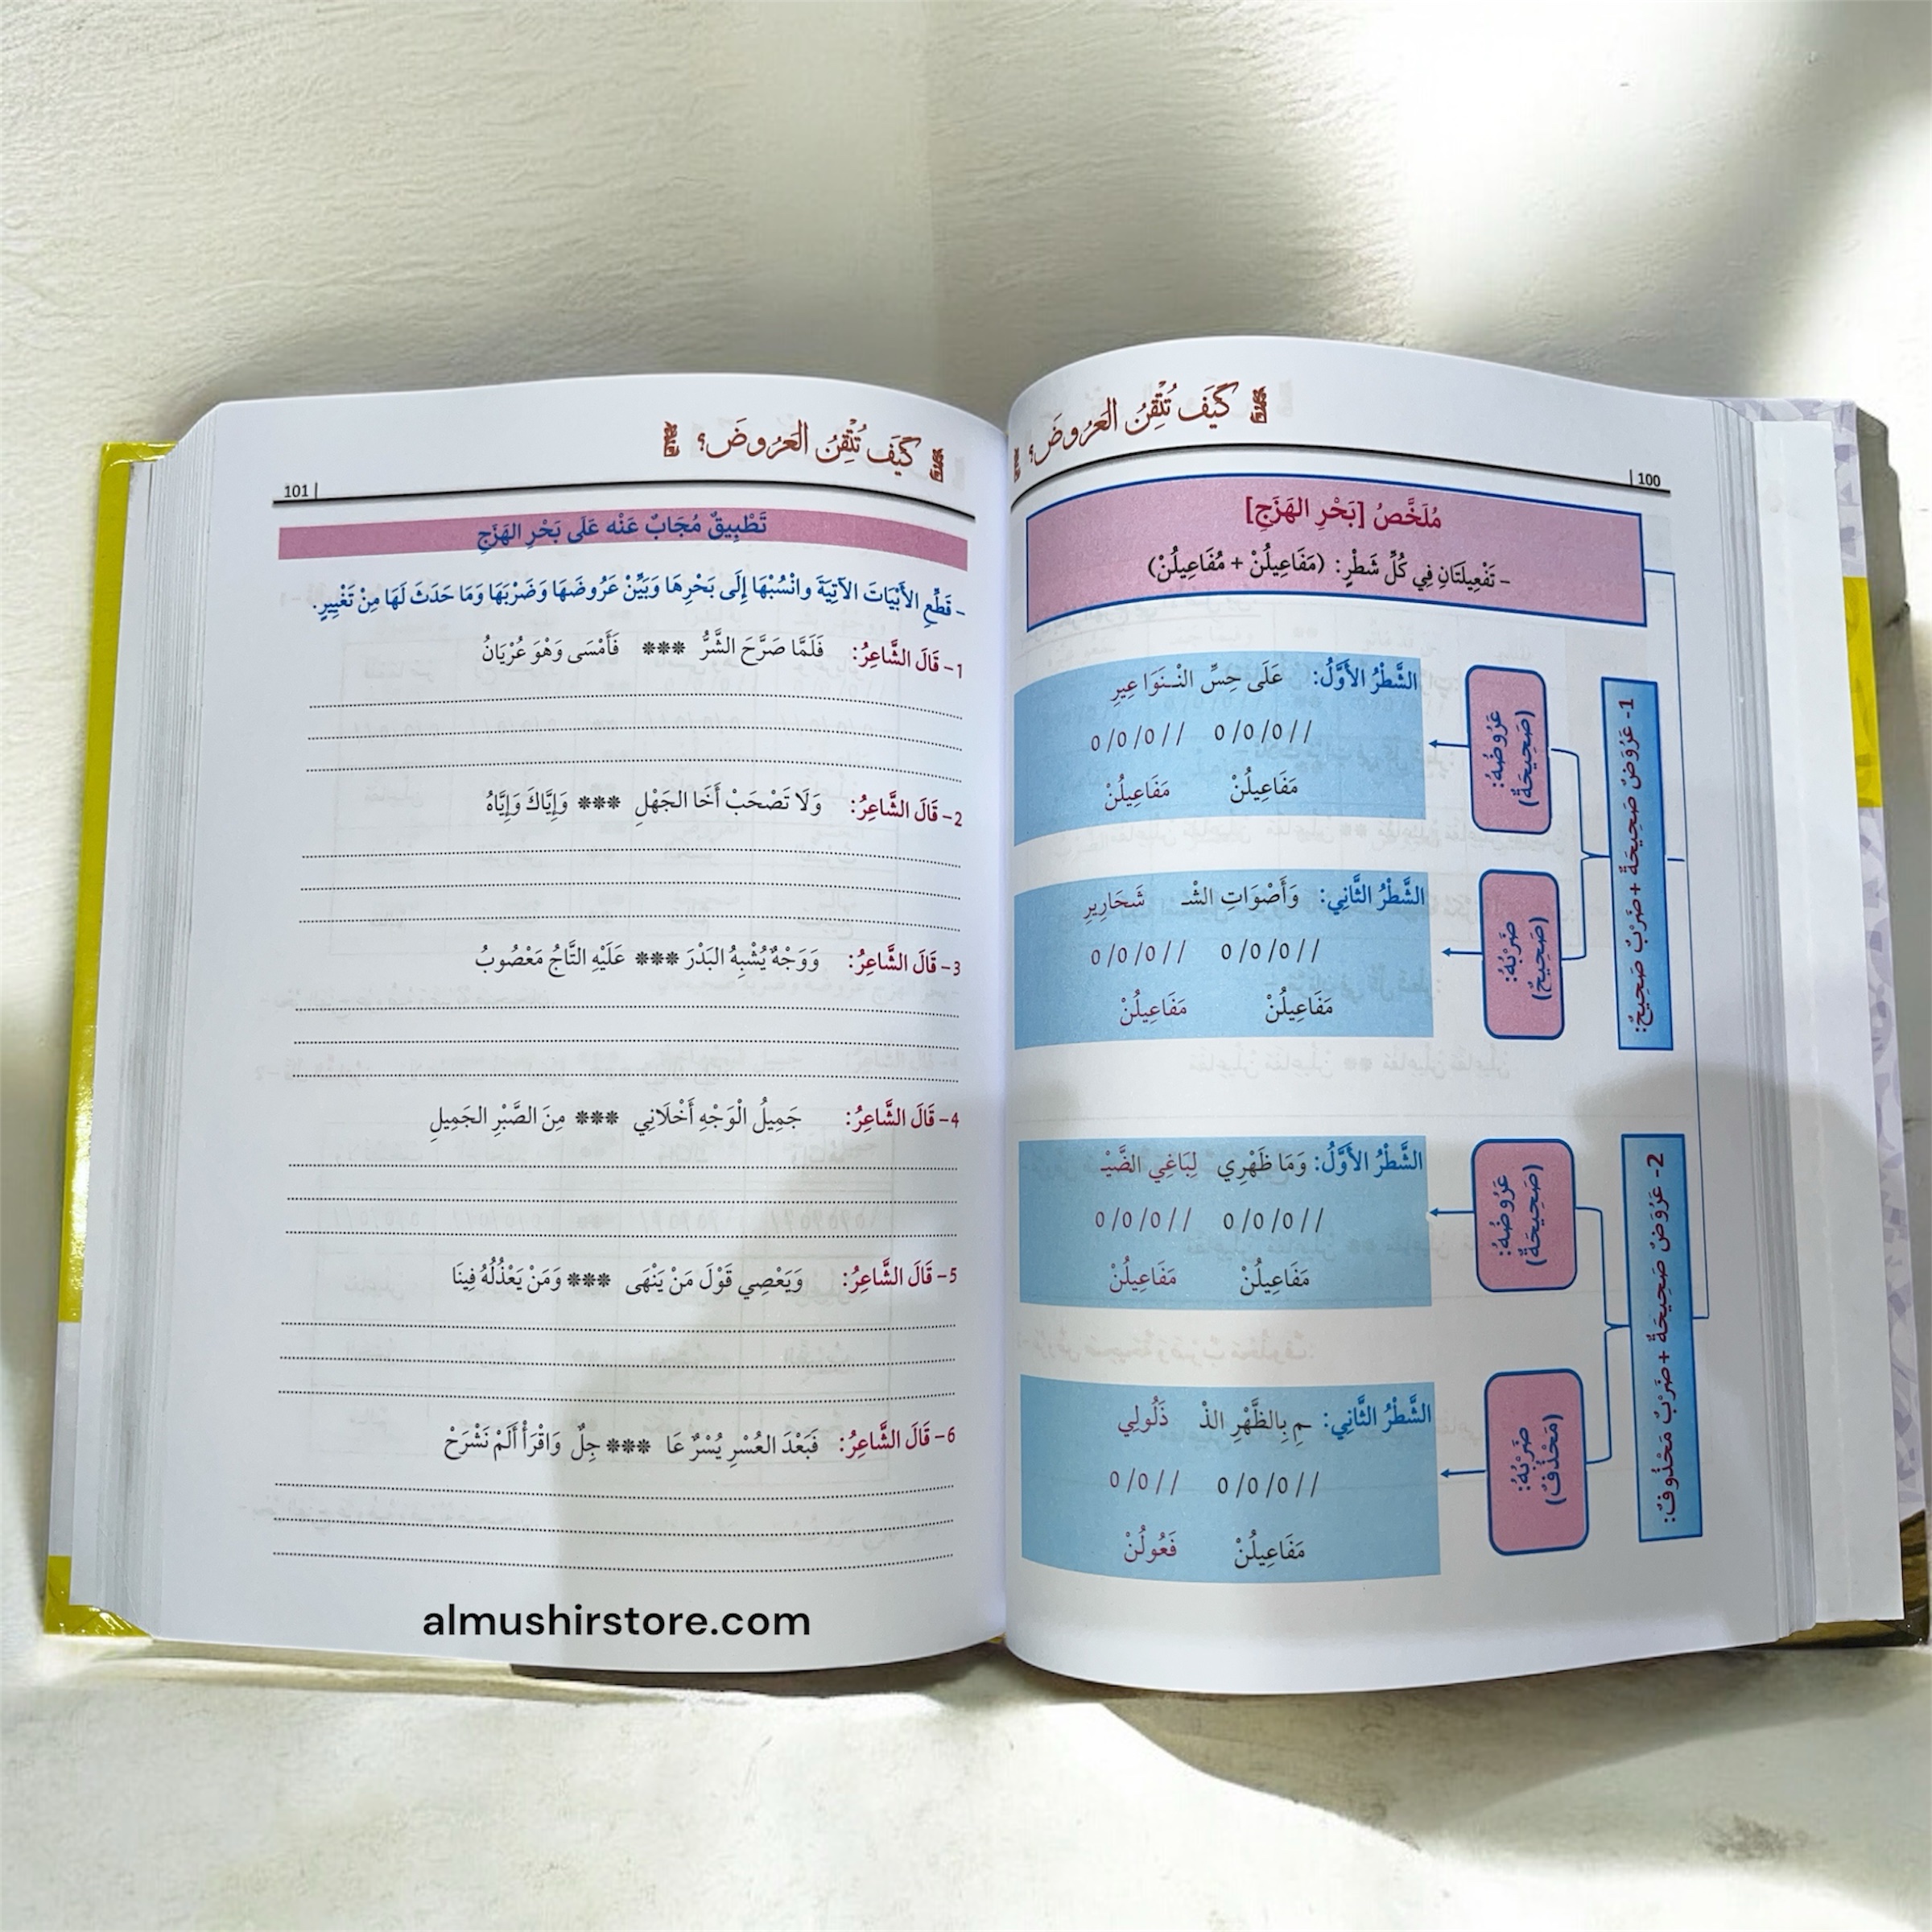 كَيَفَ تُتْقِنُ العَرُوضَ؟
100
مُلَخَّصُ [بَحْرِ الهَزَجِ]
- تَفْعِيلَتَانِ فِي كُلِّ شَطْرٍ: (مَفَاعِيلُنْ + مُفَاعِيلُنْ)
1- عَرُوضٌ صَحِيحَةٌ + ضَرْبٌ صَحِيحٌ:
عَرُوضُهُ:
(صَحِيحَةٌ)
الشَّطْرُ الأَوَّلُ: عَلَى حِسِّ النْـ ـنَوَا عِيرِ
//0/0/0 //0/0/0
مَفَاعِيلُنْ مَفَاعِيلُنْ
ضَرْبُهُ:
(صَحِيحٌ)
الشَّطْرُ الثَّانِي: وَأَصْوَاتِ الشْـ شَحَارِيرِ
//0/0/0 //0/0/0
مَفَاعِيلُنْ مَفَاعِيلُنْ
2- عَرُوضٌ صَحِيحَةٌ + ضَرْبٌ مَحْذُوفٌ:
عَرُوضُهُ:
(صَحِيحَةٌ)
الشَّطْرُ الأَوَّلُ: وَمَا ظَهْرِي لِبَاغِي الضَّيْـ
//0/0/0 //0/0/0
مَفَاعِيلُنْ مَفَاعِيلُنْ
ضَرْبُهُ:
(مَحْذُفٌ)
الشَّطْرُ الثَّانِي: مِ بِالظَّهْرِ الذْ ذَلُولِي
//0/0/0 //0/0
مَفَاعِيلُنْ فَعُولُنْ
كَيَفَ تُتْقِنُ العَرُوضَ؟
101
تَطْبِيقٌ مُجَابٌ عَنْه عَلَى بَحْرِ الهَزَجِ
- قَطِّعِ الأَبْيَاتَ الآتِيَةَ وانْسُبْهَا إِلَى بَحْرِهَا وَبَيِّنْ عَرُوضَهَا وَضَرْبَهَا وَمَا حَدَثَ لَهَا مِنْ تَغْيِيرٍ.
1- قَالَ الشَّاعِرُ: فَلَمَّا صَرَّحَ الشَّرُّ *** فَأَمْسَى وَهْوَ عُرْيَانُ
2- قَالَ الشَّاعِرُ: وَلَا تَصْحَبْ أَخَا الجَهْلِ *** وَإِيَّاكَ وَإِيَّاهُ
3- قَالَ الشَّاعِرُ: وَوَجْهٌ يُشْبِهُ البَدْرَ *** عَلَيْهِ التَّاجُ مَعْصُوبُ
4- قَالَ الشَّاعِرُ: جَمِيلُ الْوَجْهِ أَخْلَانِي *** مِنَ الصَّبْرِ الجَمِيلِ
5- قَالَ الشَّاعِرُ: وَيَعْصِي قَوْلَ مَنْ يَنْهَى *** وَمَنْ يَعْذُلُهُ فِينَا
6- قَالَ الشَّاعِرُ: فَبَعْدَ العُسْرِ يُسْرٌ عَا *** جِلٌ وَاقْرَأْ أَلَمْ نَشْرَحْ
almushirstore.com